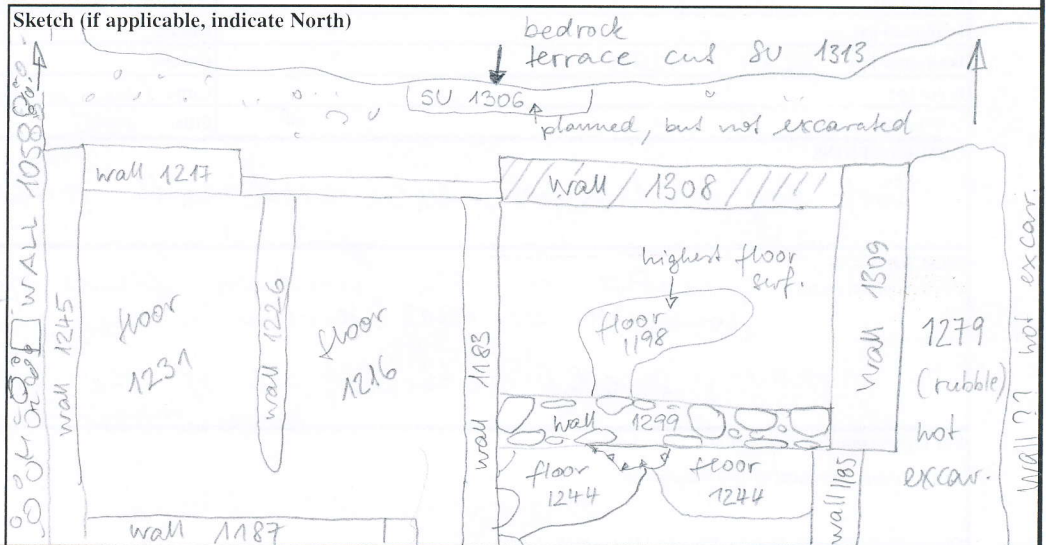 Sketch (if applicable, indicate North)
bedrock
terrace cut SU 1313
SU 1306
planned, but not excavated
WALL 1058
wall 1217
wall 1308
highest floor
surf.
floor
1198
wall 1245
floor
1231
wall 1226
floor
1216
wall 1183
wall 1309
1279
(rubble)
not
excav.
wall?? not excav.
wall 1299
floor
1244
floor
1244
wall 1185
wall 1187